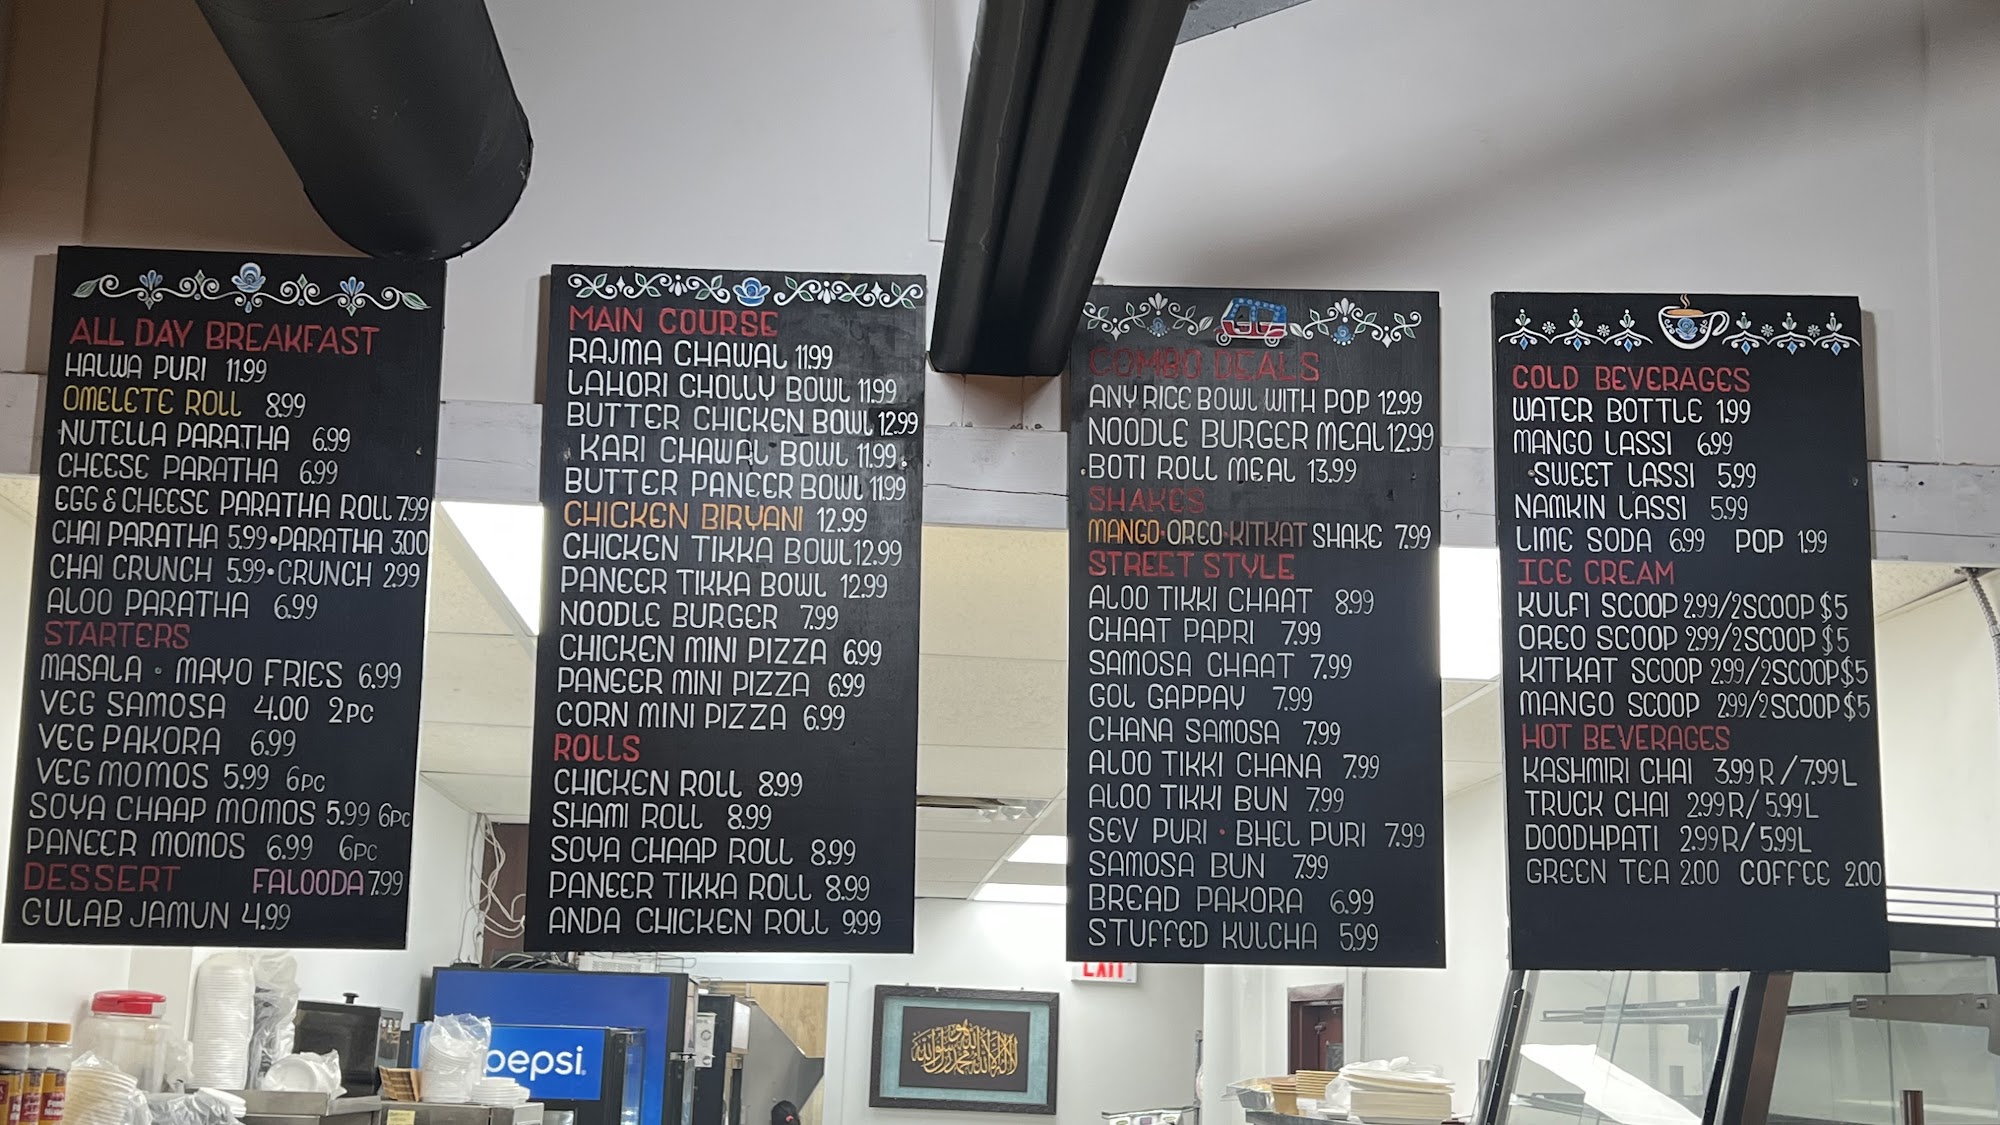 ALL DAY BREAKFAST
HALWA PURI 11.99
OMELETE ROLL 8.99
NUTELLA PARATHA 6.99
CHEESE PARATHA 6.99
EGG & CHEESE PARATHA ROLL 7.99
CHAI PARATHA 5.99•PARATHA 3.00
CHAI CRUNCH 5.99•CRUNCH 2.99
ALOO PARATHA 6.99
STARTERS
MASALA • MAYO FRIES 6.99
VEG SAMOSA 4.00 2PC
VEG PAKORA 6.99
VEG MOMOS 5.99 6PC
SOYA CHAAP MOMOS 5.99 6PC
PANEER MOMOS 6.99 6PC
DESSERT FALOODA 7.99
GULAB JAMUN 4.99
MAIN COURSE
RAJMA CHAWAL 11.99
LAHORI CHOLLY BOWL 11.99
BUTTER CHICKEN BOWL 12.99
KARI CHAWAL BOWL 11.99
BUTTER PANEER BOWL 11.99
CHICKEN BIRYANI 12.99
CHICKEN TIKKA BOWL 12.99
PANEER TIKKA BOWL 12.99
NOODLE BURGER 7.99
CHICKEN MINI PIZZA 6.99
PANEER MINI PIZZA 6.99
CORN MINI PIZZA 6.99
ROLLS
CHICKEN ROLL 8.99
SHAMI ROLL 8.99
SOYA CHAAP ROLL 8.99
PANEER TIKKA ROLL 8.99
ANDA CHICKEN ROLL 9.99
COMBO DEALS
ANY RICE BOWL WITH POP 12.99
NOODLE BURGER MEAL 12.99
BOTI ROLL MEAL 13.99
SHAKES
MANGO•OREO•KITKAT SHAKE 7.99
STREET STYLE
ALOO TIKKI CHAAT 8.99
CHAAT PAPRI 7.99
SAMOSA CHAAT 7.99
GOL GAPPAY 7.99
CHANA SAMOSA 7.99
ALOO TIKKI CHANA 7.99
ALOO TIKKI BUN 7.99
SEV PURI • BHEL PURI 7.99
SAMOSA BUN 7.99
BREAD PAKORA 6.99
STUFFED KULCHA 5.99
COLD BEVERAGES
WATER BOTTLE 1.99
MANGO LASSI 6.99
SWEET LASSI 5.99
NAMKIN LASSI 5.99
LIME SODA 6.99 POP 1.99
ICE CREAM
KULFI SCOOP 2.99/2SCOOP $5
OREO SCOOP 2.99/2SCOOP $5
KITKAT SCOOP 2.99/2SCOOP $5
MANGO SCOOP 2.99/2SCOOP $5
HOT BEVERAGES
KASHMIRI CHAI 3.99 R / 7.99 L
TRUCK CHAI 2.99 R/ 5.99 L
DOODHPATI 2.99 R/ 5.99 L
GREEN TEA 2.00 COFFEE 2.00
EXIT
pepsi